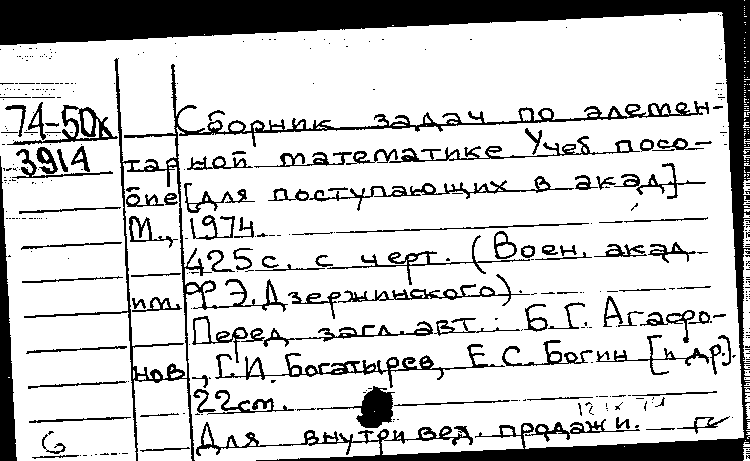 74-50к Сборник задач по элемен-
3914 тарной математике. Учеб. посо-
бие [для поступающих в акад.]
М., 1974.
425 с. с черт. (Воен. акад.
им. Ф. Э. Дзержинского).
Перед загл. авт.: Б. Г. Агафо-
нов, Г. И. Богатырев, Е. С. Богин [и др.].
22 см.
12 IX 74
6 Для внутривед. продажи.